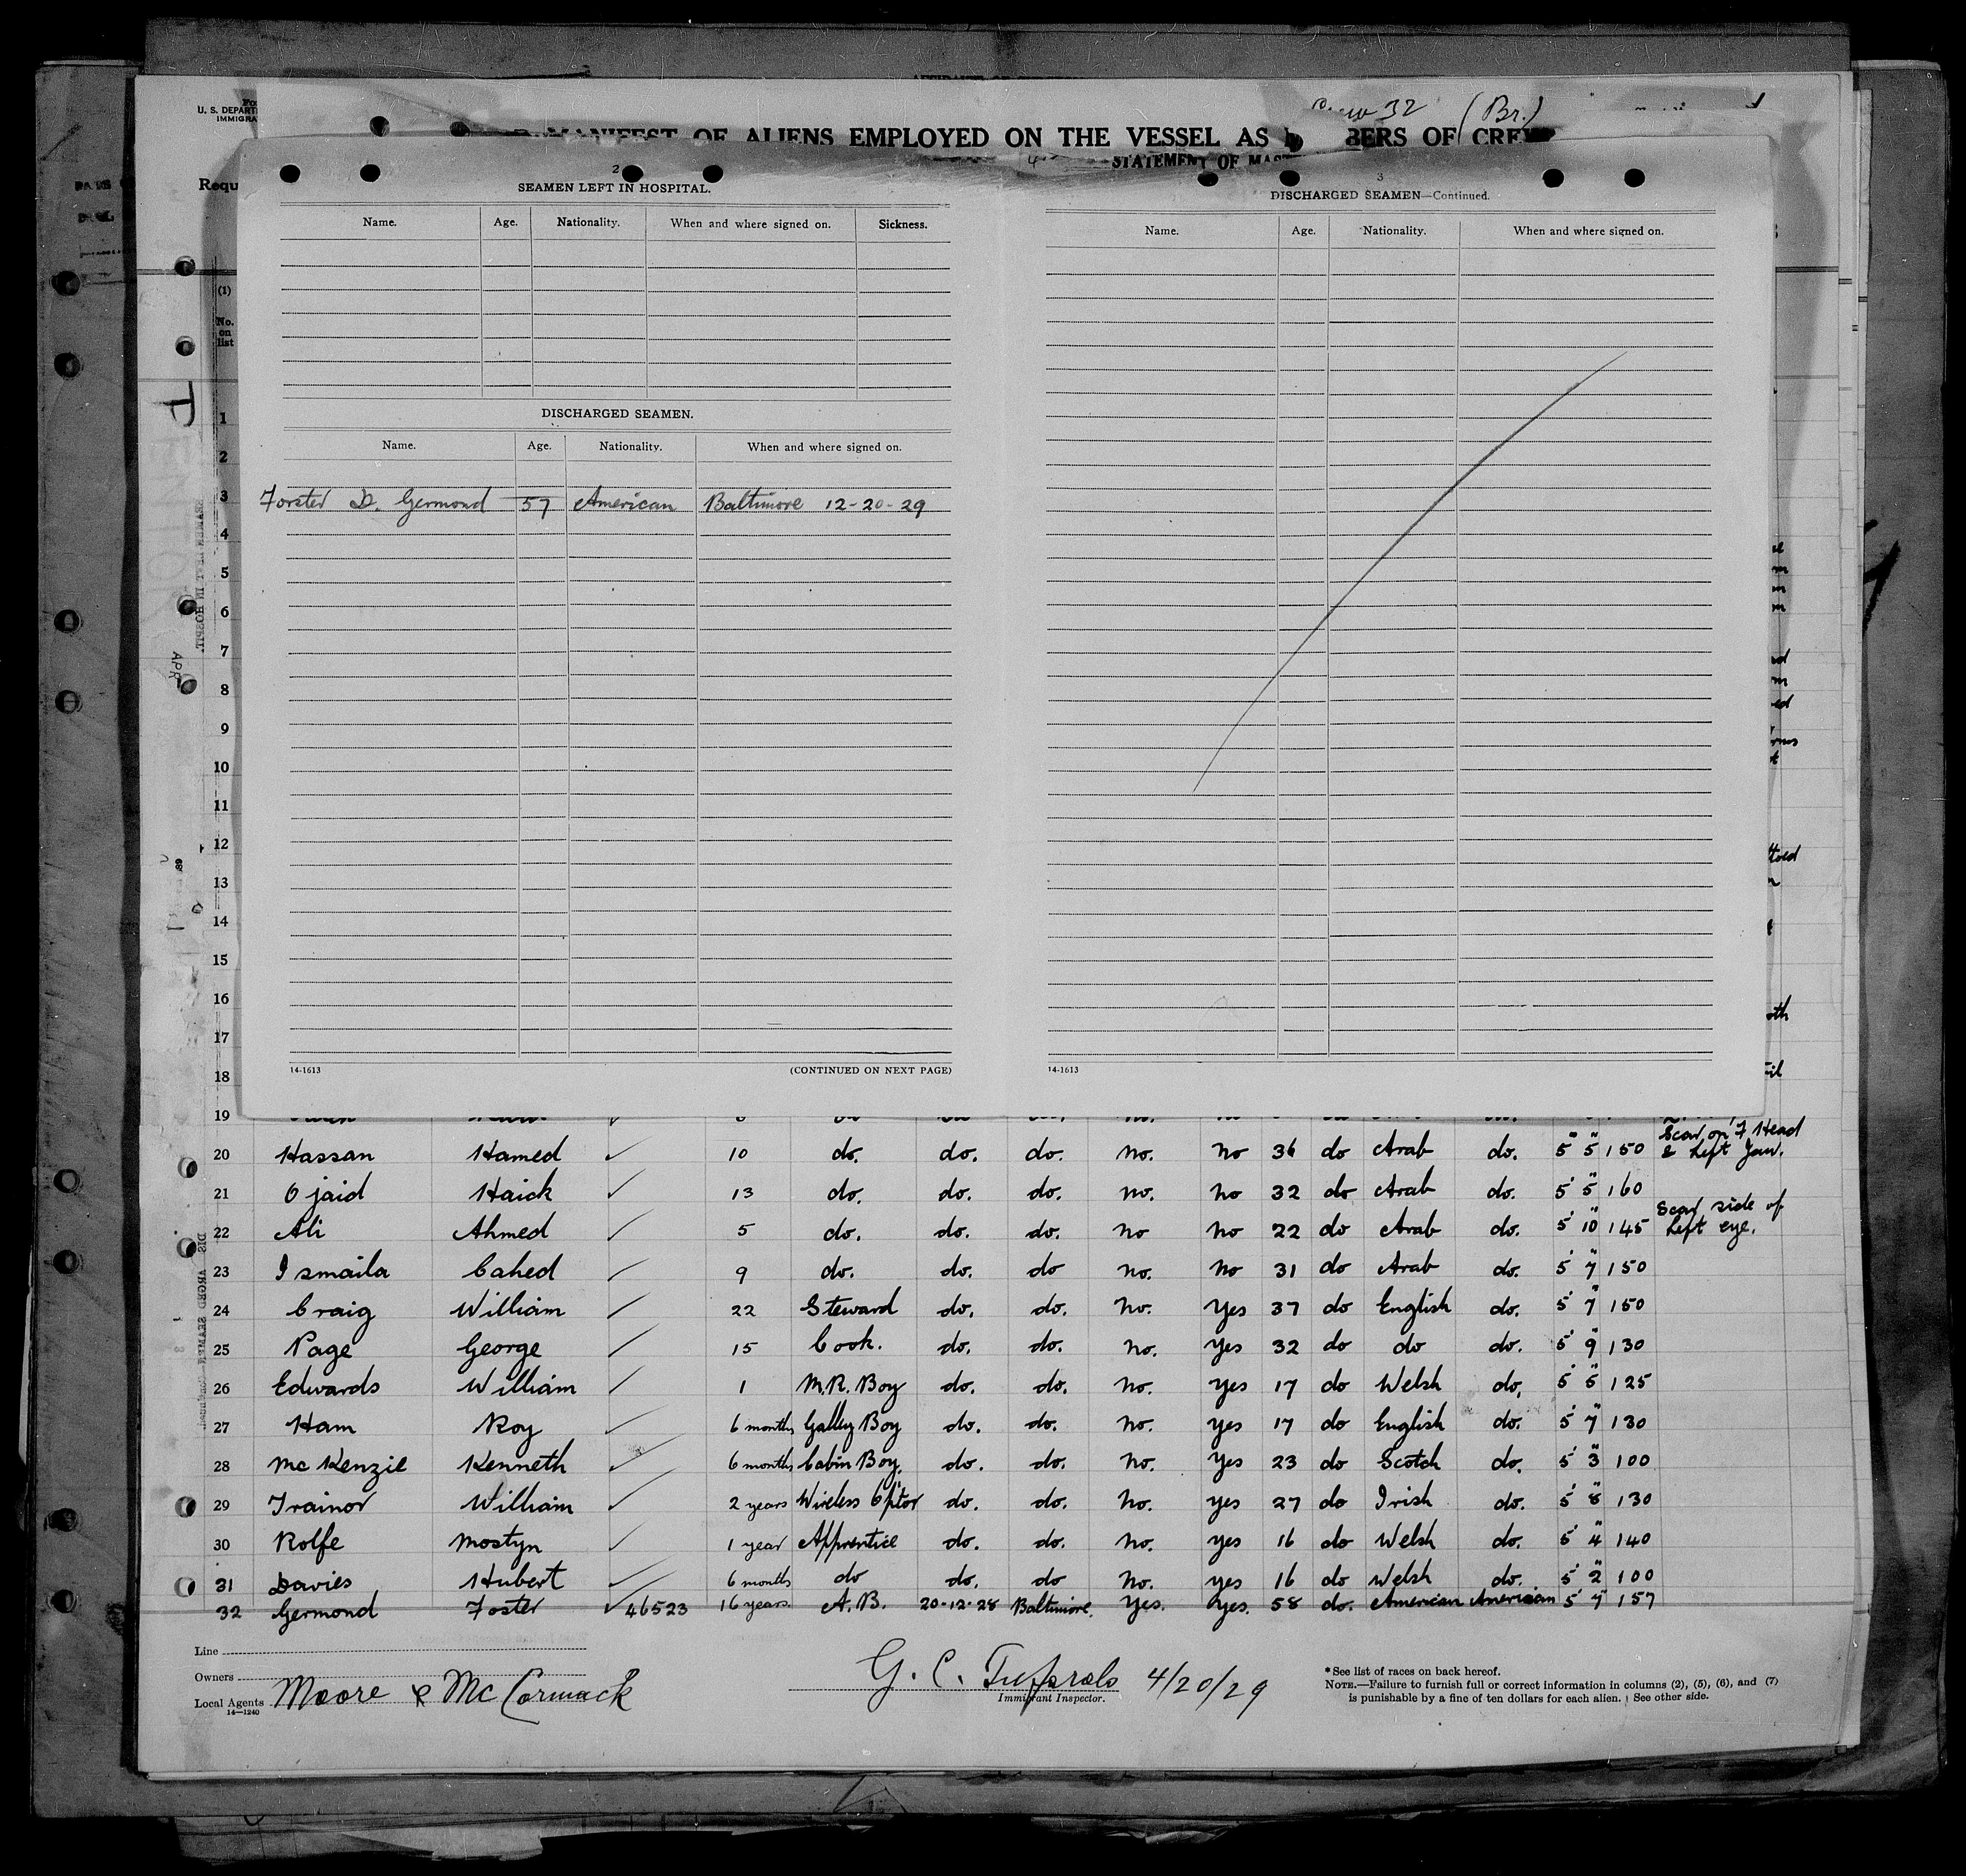 Crew 32 (Br.)
U. S. DEPART
IMMIGRA
MANIFEST OF ALIENS EMPLOYED ON THE VESSEL AS BERS OF CREW
STATEMENT OF MAS
Requ
2
SEAMEN LEFT IN HOSPITAL.
Name. Age. Nationality. When and where signed on. Sickness.
DISCHARGED SEAMEN.
Name. Age. Nationality. When and where signed on.
Forster D. Germond 57 American Baltimore 12-20-29
14-1613 (CONTINUED ON NEXT PAGE)
3
DISCHARGED SEAMEN—Continued.
Name. Age. Nationality. When and where signed on.
14-1613
(1)
No.
on
list
1
2
3
4
5
6
7
8
9
10
11
12
13
14
15
16
17
18
19
Scar on F Head
20 Hassan Hamed ✓ 10 do. do. do. no. no 36 do Arab do. 5' 5" 150 & Left Jaw.
21 Ojaid Haick ✓ 13 do. do. do. no. no 32 do Arab do. 5' 5" 160
Scar side of
22 Ali Ahmed ✓ 5 do. do. do. no no 22 do Arab do. 5' 10" 145 Left eye.
23 Ismaila Cahed ✓ 9 do. do. do no. no 31 do Arab do. 5' 7" 150
24 Craig William ✓ 22 Steward do. do. no. yes 37 do English do. 5' 7" 150
25 Page George ✓ 15 Cook. do. do. no. yes 32 do do do. 5' 9" 130
26 Edwards William ✓ 1 M.R. Boy do. do. no. yes 17 do Welsh do. 5' 5" 125
27 Ham Roy ✓ 6 months Galley Boy do. do. no. yes 17 do English do. 5' 7" 130
28 McKenzie Kenneth ✓ 6 months Cabin Boy. do. do. no. yes 23 do Scotch do. 5' 3" 100
29 Trainor William ✓ 2 years Wireless Op'tor do. do. no. yes 27 do Irish do. 5' 8" 130
30 Rolfe Mostyn ✓ 1 year Apprentice do. do. no. yes 16 do Welsh do. 5' 4" 140
31 Davies Hubert ✓ 6 months do do. do no. yes 16 do Welsh do. 5' 2" 100
32 Germond Foster ✓ 46523 16 years. A.B. 20-12-28 Baltimore. Yes. Yes. 58 do. American American 5' 7" 157
Line
Owners
Local Agents Moore & McCormack
14—1240
G. C. 4/20/29
Immigrant Inspector.
*See list of races on back hereof.
NOTE.—Failure to furnish full or correct information in columns (2), (5), (6), and (7)
is punishable by a fine of ten dollars for each alien. See other side.